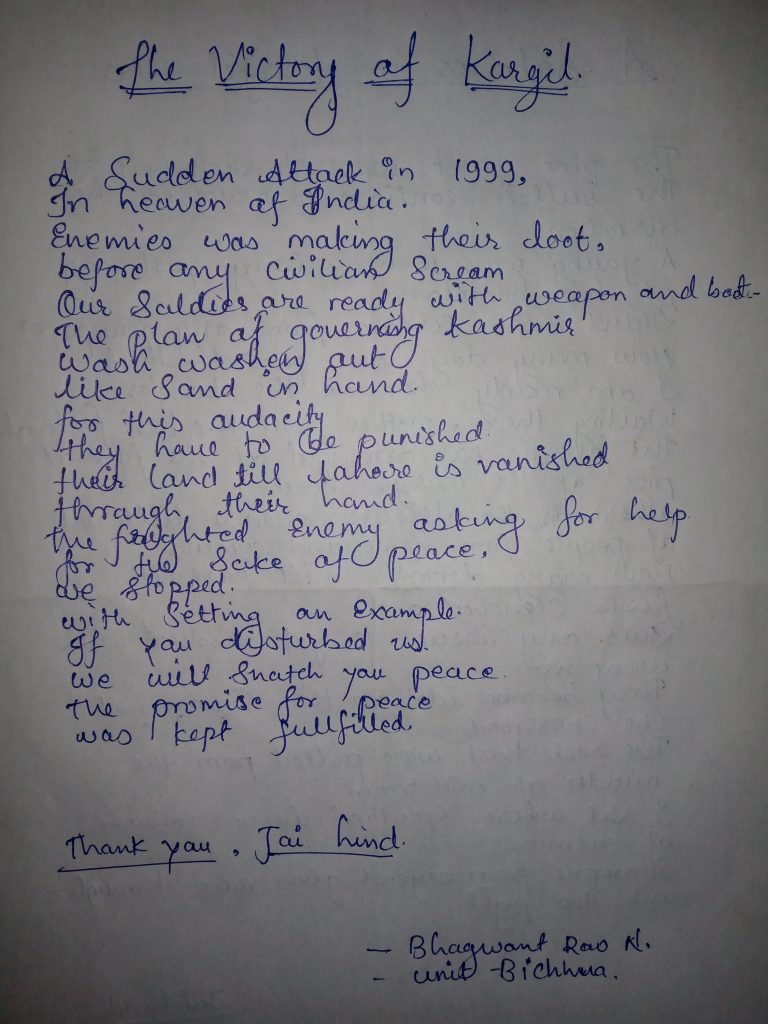 The Victory of Kargil.
A Sudden Attack in 1999,
In heaven of India.
Enemies was making their loot,
before any civilian Scream
Our Soldies are ready with weapon and boot.-
The plan of governing Kashmir
Wash washen out
like Sand in hand.
for this audacity
they have to be punished.
their land till Lahore is vanished
through their hand.
the frighted Enemy asking for help
for the Sake of peace,
we stopped.
with Setting an Example.
If you disturbed us.
we will Snatch you peace.
the promise for peace
was kept fullfilled.
Thank you, Jai hind.
— Bhagwant Rao N.
- unit Bichhua.